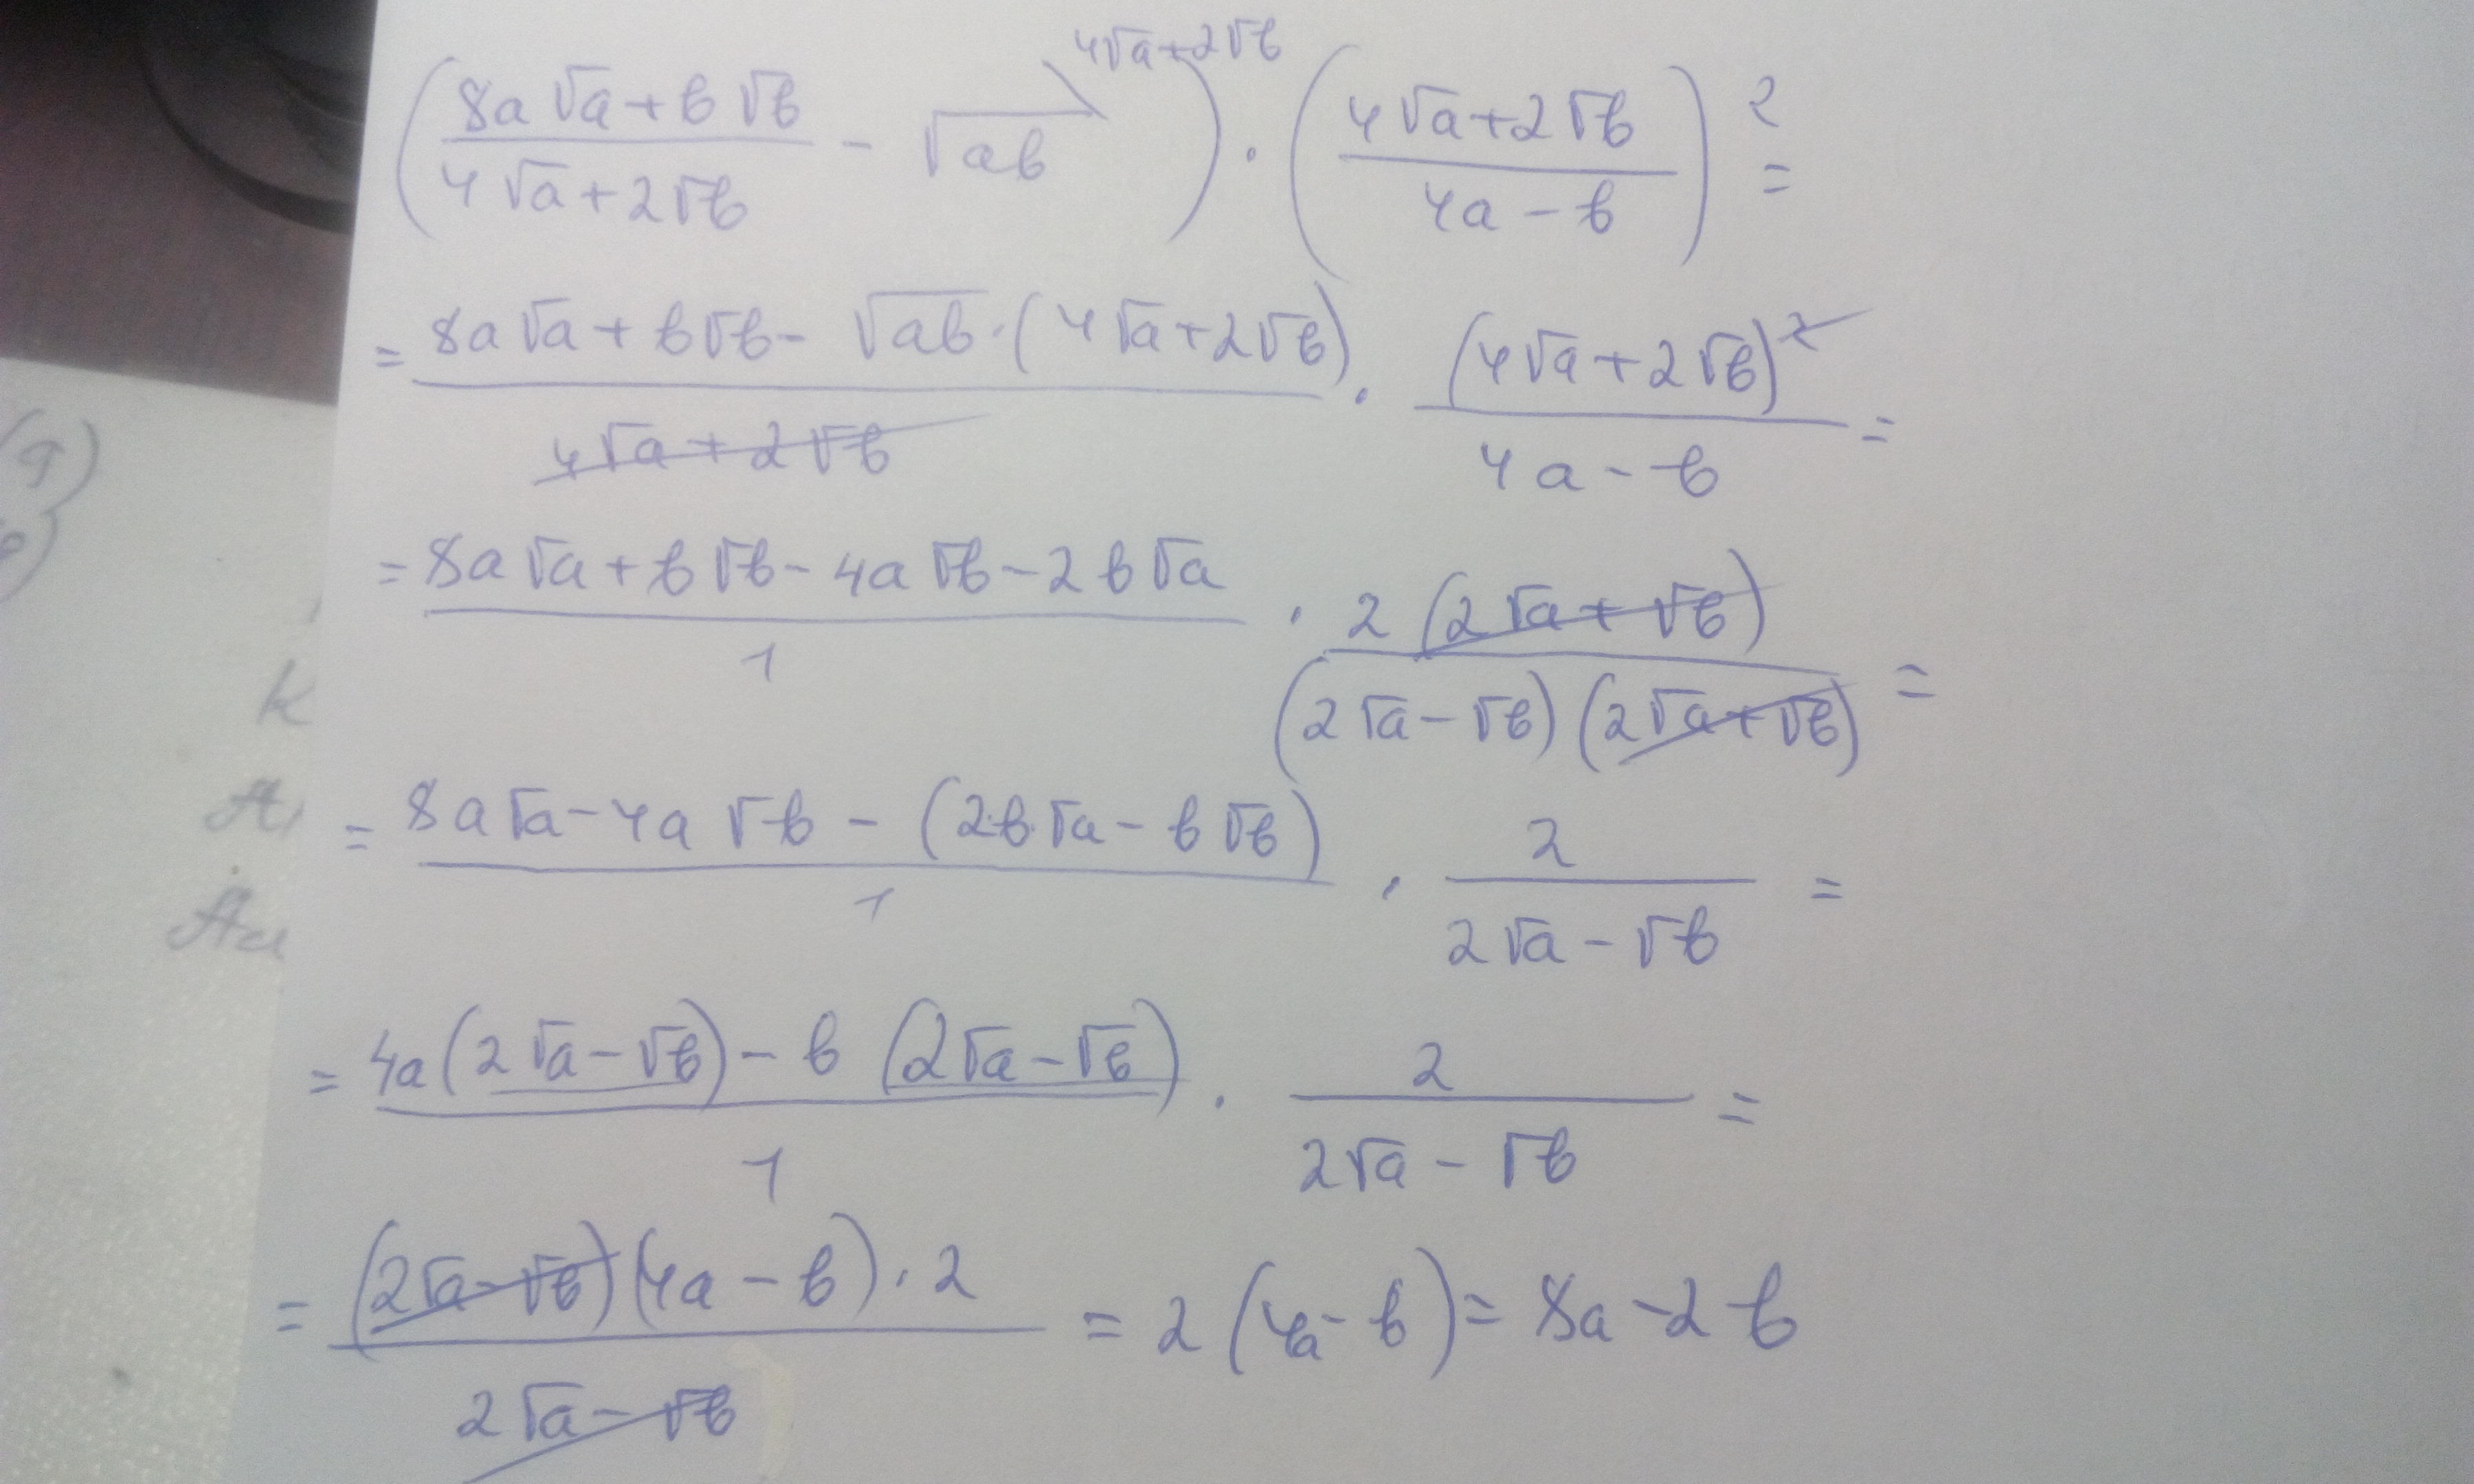 4√a+2√b
(8a√a+b√b / 4√a+2√b - √ab) · (4√a+2√b / 4a-b)² =
= 8a√a+b√b-√ab·(4√a+2√b) / 4√a+2√b · (4√a+2√b)² / 4a-b =
= 8a√a+b√b-4a√b-2b√a / 1 · 2(2√a+√b) / (2√a-√b)(2√a+√b) =
= 8a√a-4a√b-(2b√a-b√b) / 1 · 2 / 2√a-√b =
= 4a(2√a-√b)-b(2√a-√b) / 1 · 2 / 2√a-√b =
= (2√a-√b)(4a-b)·2 / 2√a-√b = 2(4a-b) = 8a-2b